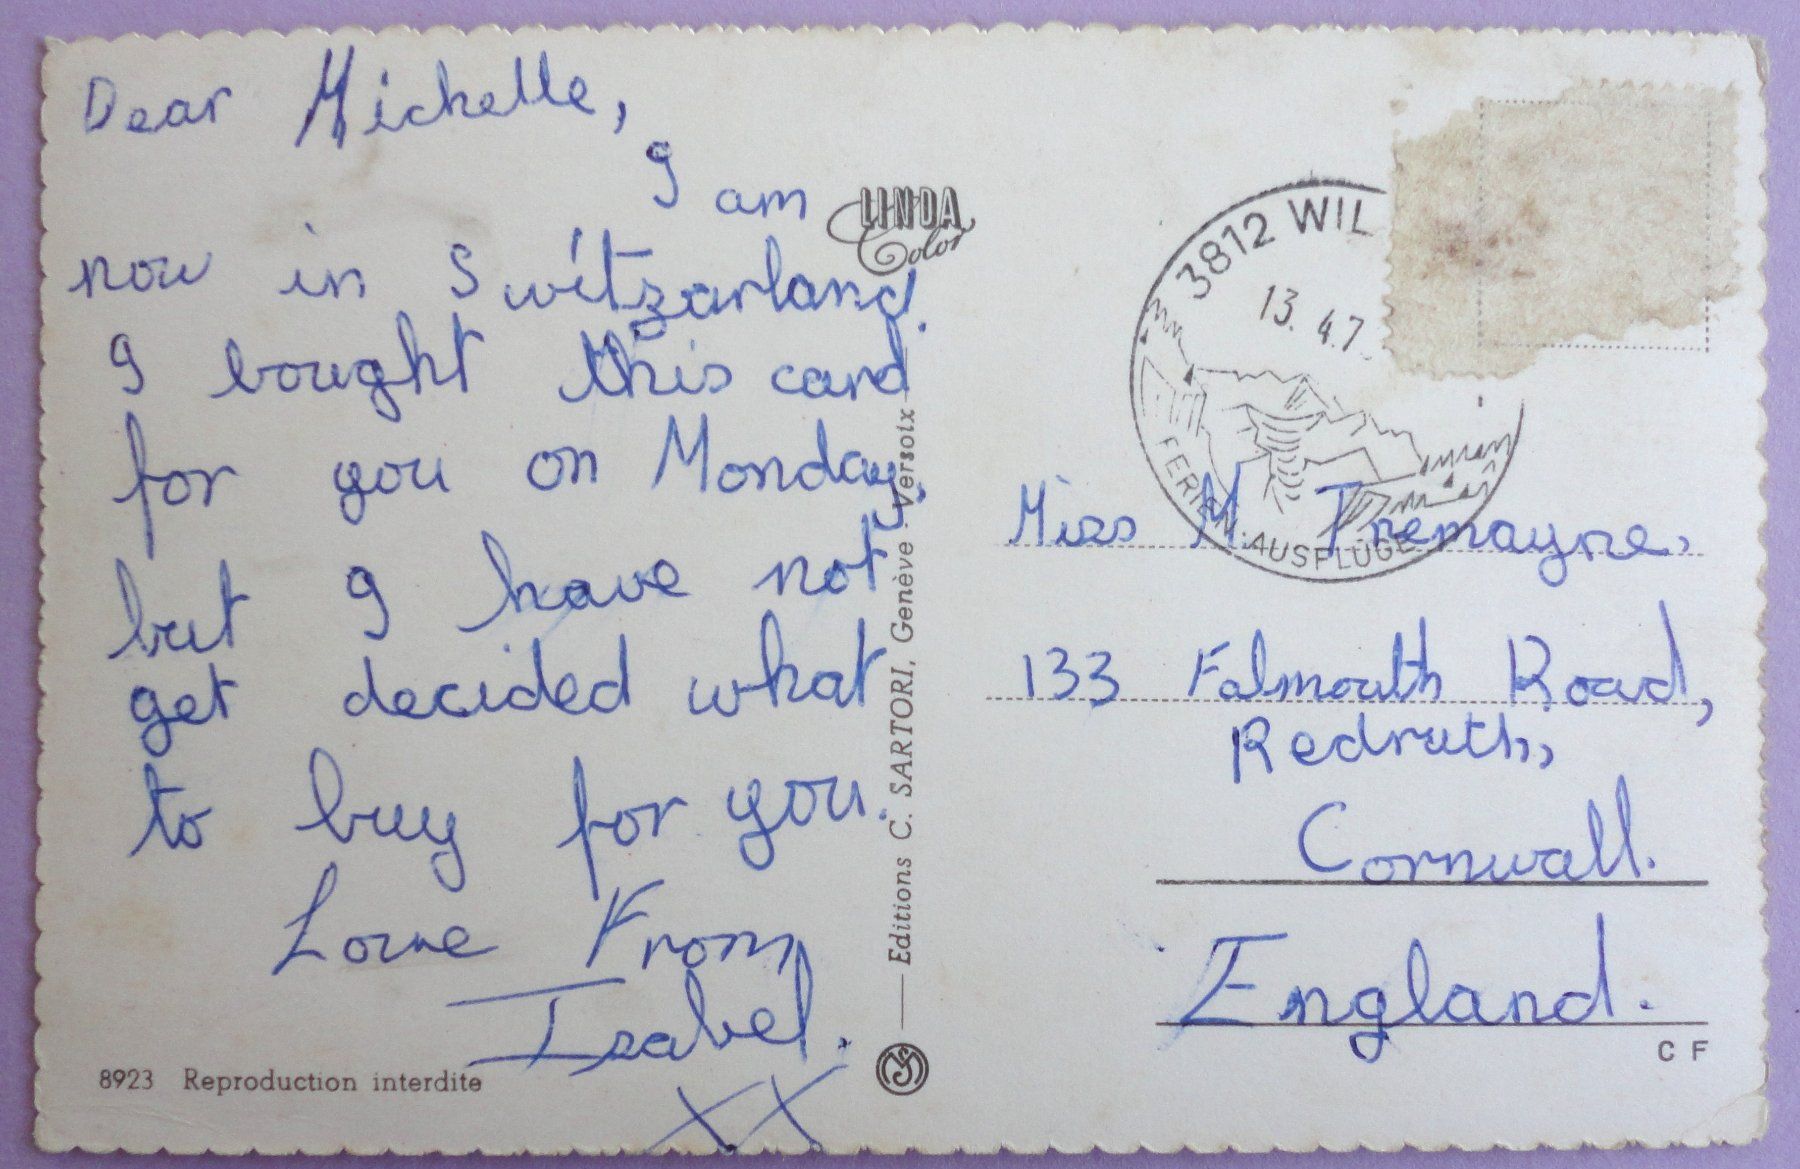 Dear Michelle,
I am
now in Switzarland.
I bought this card
for you on Monday,
but I have not
get decided what
to buy for you.
Love From
Isabel.
XX
8923 Reproduction interdite
LINDA
Color
Editions C. SARTORI, Genève-Versoix
3812 WIL
13.4.7
FERIEN AUSFLÜGE
Miss M. Tremayne,
133 Falmouth Road,
Redruth,
Cornwall.
England.
C F